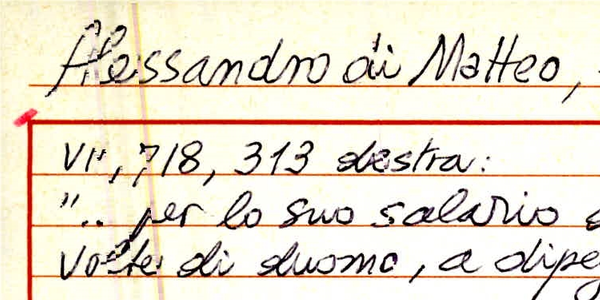 Alessandro di Matteo,
VII, 718, 313 destra:
".. per lo suo salario
volte di duomo, a dipe